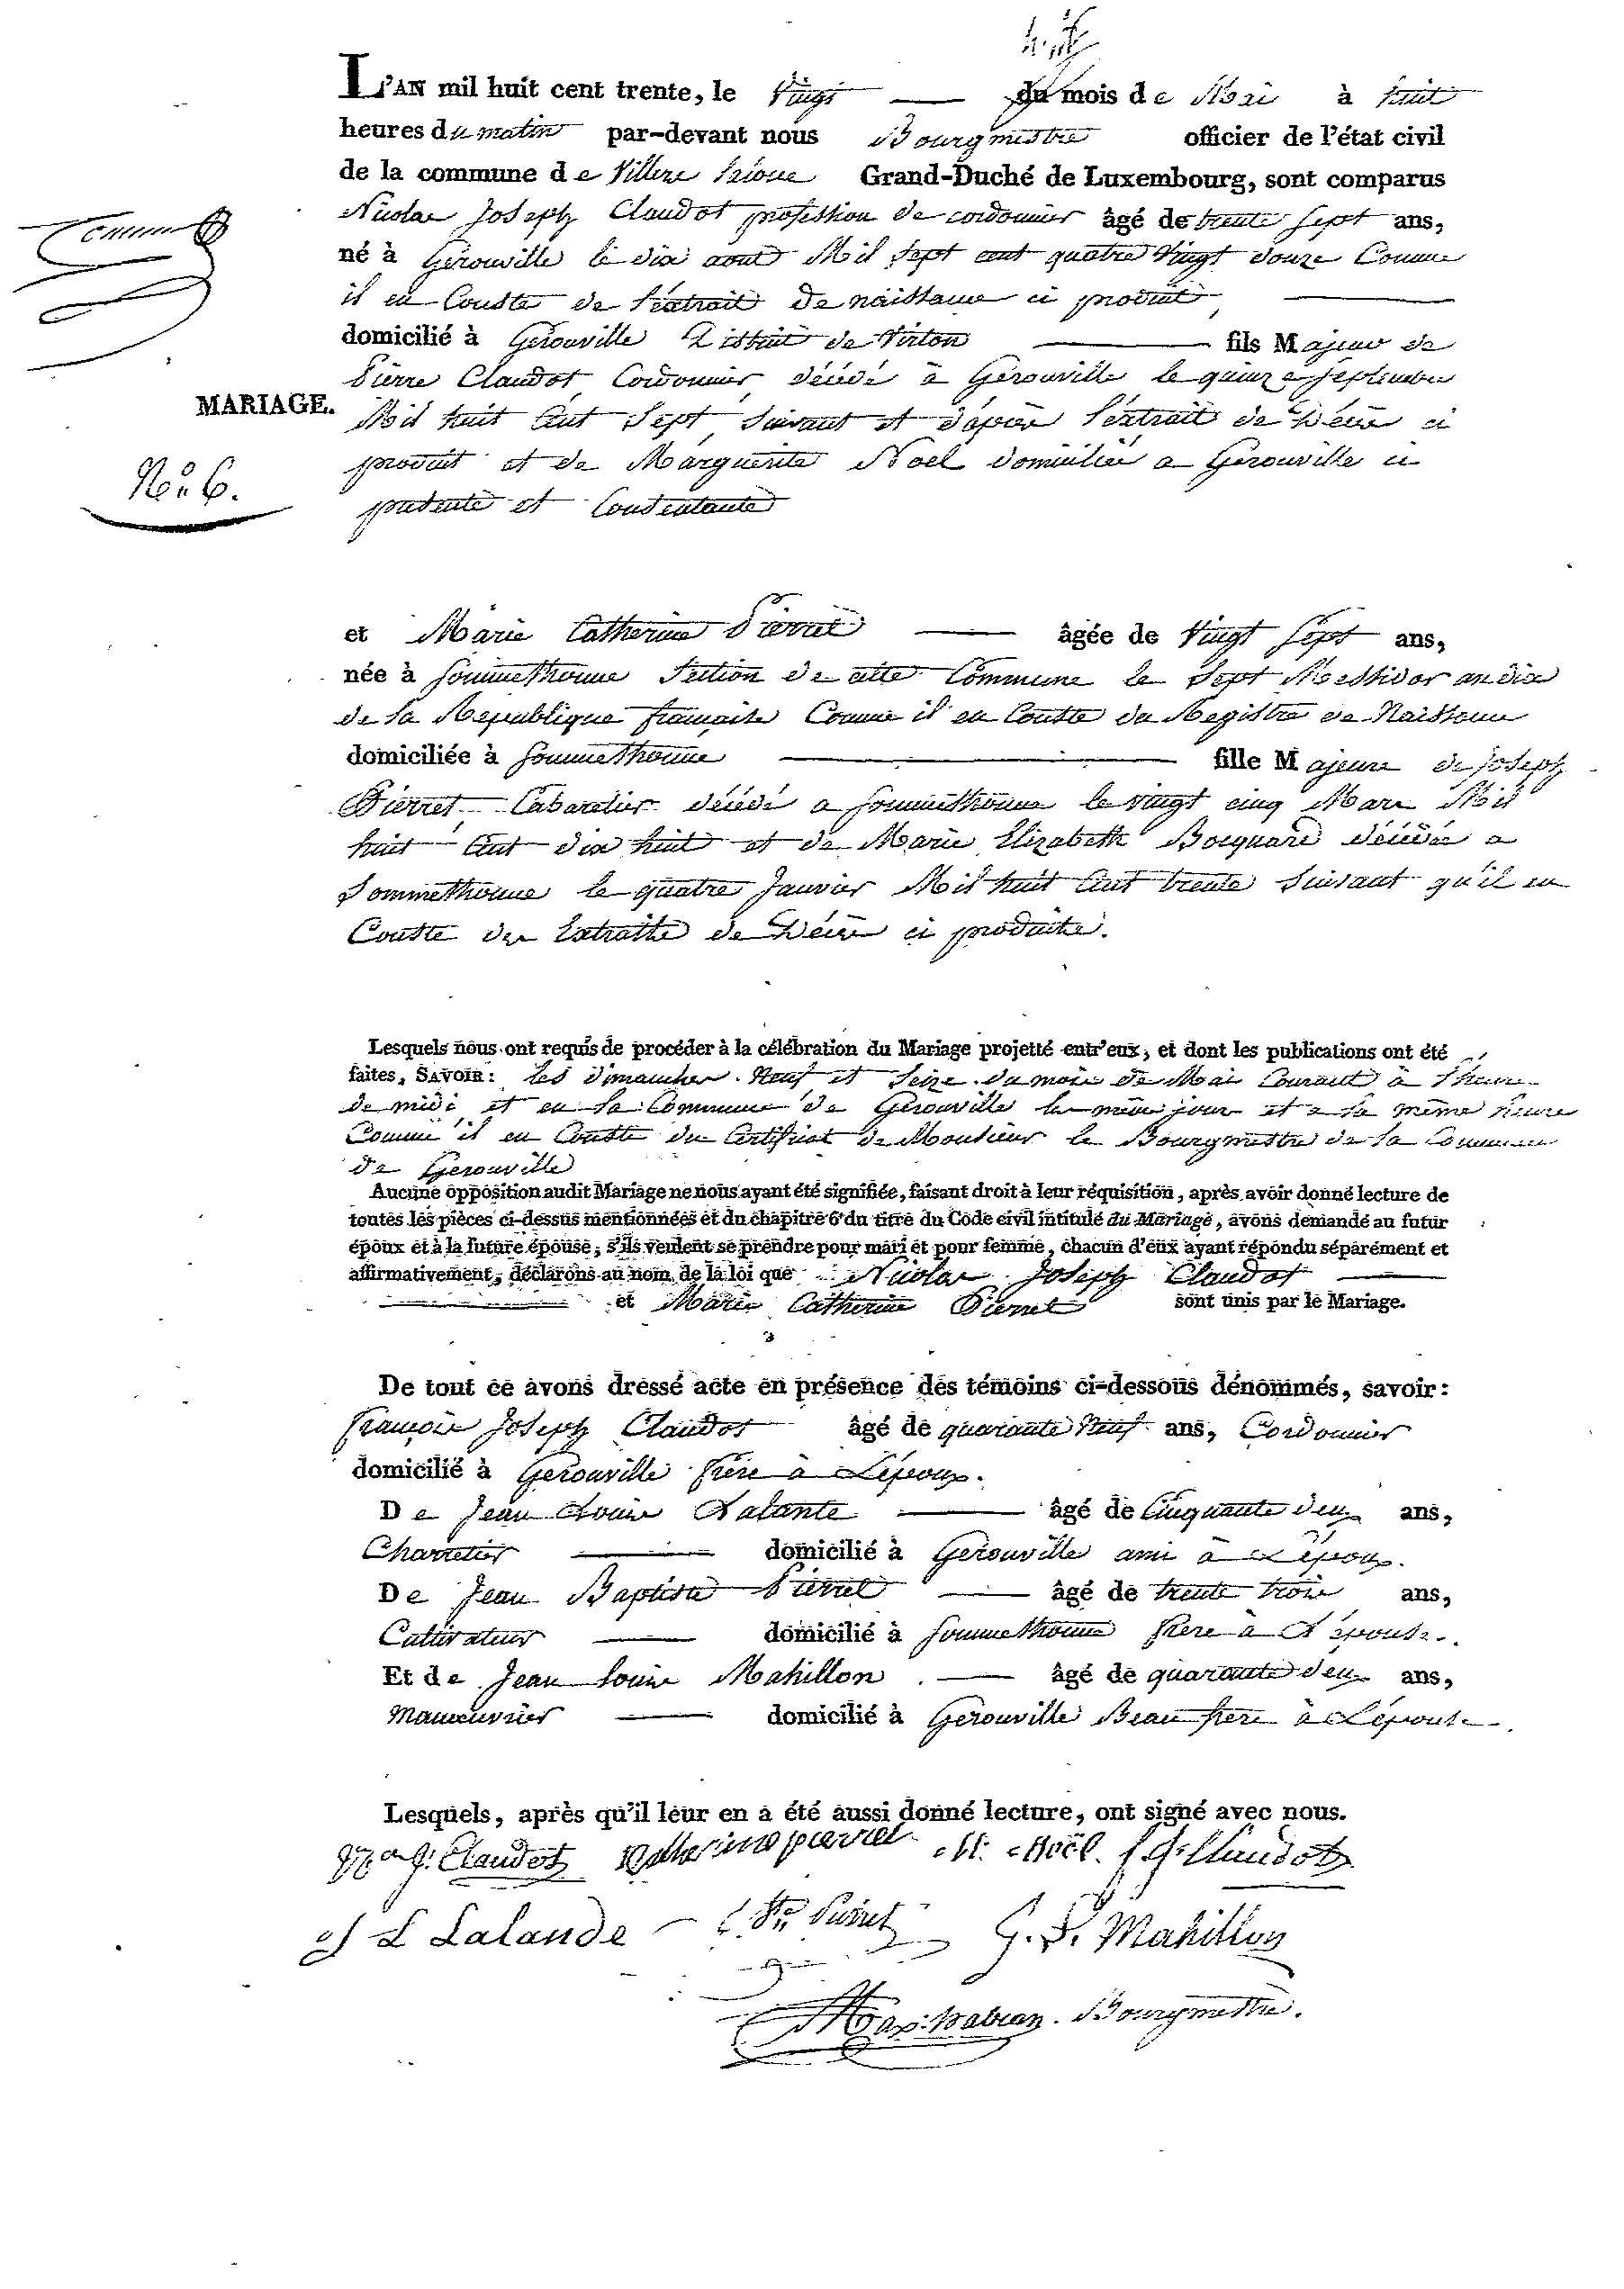 huit
L'AN mil huit cent trente, le Vingt du mois de Mai à huit
heures du matin par-devant nous Bourgmestre officier de l'état civil
de la commune de Villers Grand-Duché de Luxembourg, sont comparus
Nicolas Joseph Claudot profession de cordonnier âgé de trente sept ans,
né à Gérouville le dix aout Mil sept cent quatre Vingt douze Comme
il en Conste de l'extrait de naissance ci produit,
domicilié à Gérouville District de Virton fils Majeur de
Pierre Claudot, Cordonnier, décédé à Gérouville le quinze Septembre
MARIAGE.
Mil huit Cent Sept, suivant et d'après l'extrait de Décès ci
produit et de Marguerite Noel domiciliée a Gérouville ci
No. 6.
présente et Consentante
et Marie Catherine Pierret âgée de Vingt Sept ans,
née à Sommethonne Section de cette Commune le Sept Messidor an dix
de la Republique française Comme il en Conste du Registre de Naissance
domiciliée à Sommethonne fille Majeure de Joseph
Pierret Cabaretier décédé a Sommethonne le vingt cinq Mars Mil
huit Cent dix huit et de Marie Elizabeth Bocquart décédée a
Sommethonne le quatre Janvier Mil huit Cent trente Suivant qu'il en
Conste des Extraits de Décès ci produits.
Lesquels nous ont requis de procéder à la célébration du Mariage projetté entr'eux, et dont les publications ont été
faites, SAVOIR: les dimanches Neuf et Seize du mois de Mai Courant à l'heure
de midi et en la Commune de Gérouville les même jour et a la même heure
Comme il en Conste du Certificat de Monsieur le Bourgmestre de la Commune
de Gerouville
Aucune opposition audit Mariage ne nous ayant été signifiée, faisant droit à leur réquisition, après avoir donné lecture de
toutes les pièces ci-dessus mentionnées et du chapitre 6 du titre du Code civil intitulé du Mariage, avons demandé au futur
époux et à la future épouse, s'ils veulent se prendre pour mari et pour femme, chacun d'eux ayant répondu séparément et
affirmativement, déclarons au nom de la loi que Nicolas Joseph Claudot
et Marie Catherine Pierret sont unis par le Mariage.
De tout ce avons dressé acte en présence des témoins ci-dessous dénommés, savoir:
François Joseph Claudot âgé de quarante Neuf ans, Cordonnier
domicilié à Gerouville frère à L'époux.
De Jean Louis Lalante âgé de Cinquante deux ans,
Charretier domicilié à Gerouville ami à L'époux.
De Jean Baptiste Pierret âgé de trente trois ans,
Cultivateur domicilié à Sommethonne frère à L'épouse.
Et de Jean Louis Mahillon âgé de quarante deux ans,
Manœuvrier domicilié à Gerouville Beau frère à L'épouse.
Lesquels, après qu'il leur en a été aussi donné lecture, ont signé avec nous.
J. Claudot Katherine pierret M. Noël. f J. Claudot
J L Lalande Bte Pierret G. L. Mahillon
Bourgmestre.